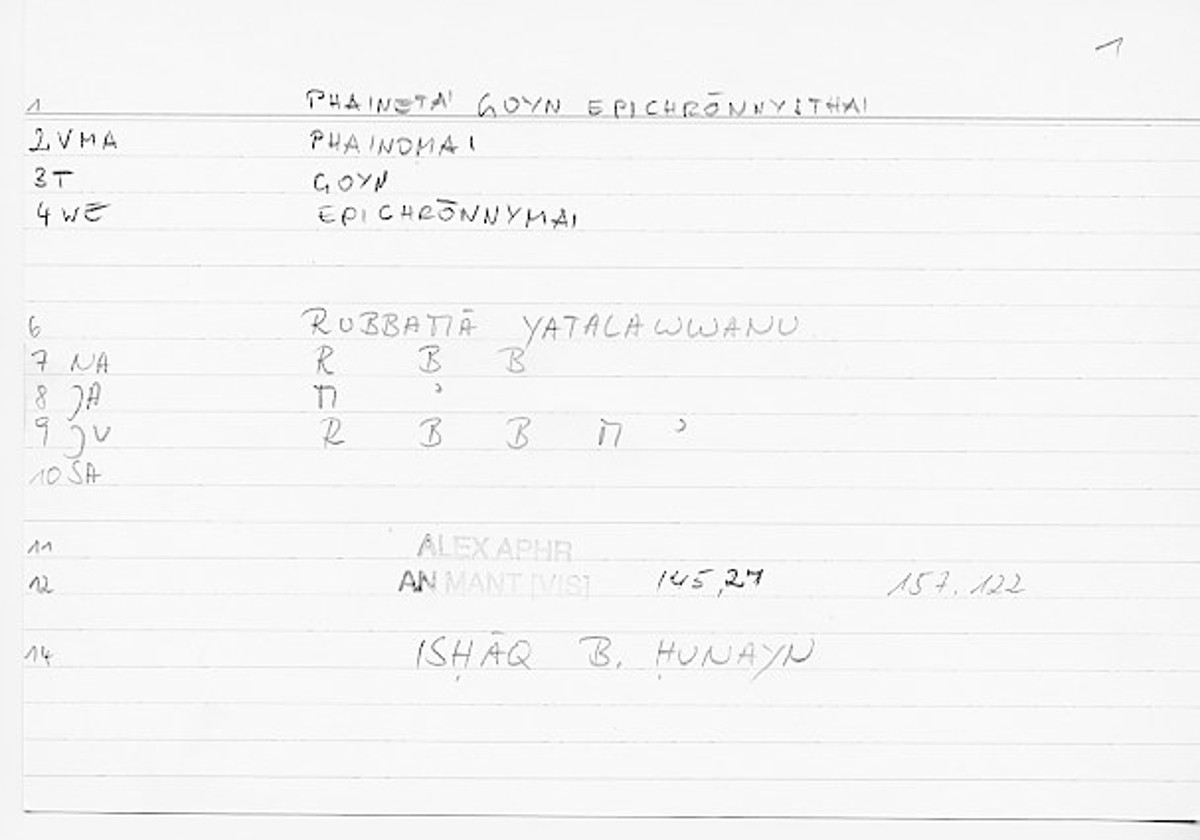 1
1 PHAINETAI GOYN EPICHRŌNNYSTHAI
2 VMA PHAINOMAI
3 T GOYN
4 WE EPICHRŌNNYMAI
6 RUBBAMĀ YATALAWWANU
7 NA R B B
8 JA M ʾ
9 JV R B B M ʾ
10 SA
11 ALEX APHR
12 AN MANT [VIS] 145,27 157.122
14 ISḤĀQ B. ḤUNAYN